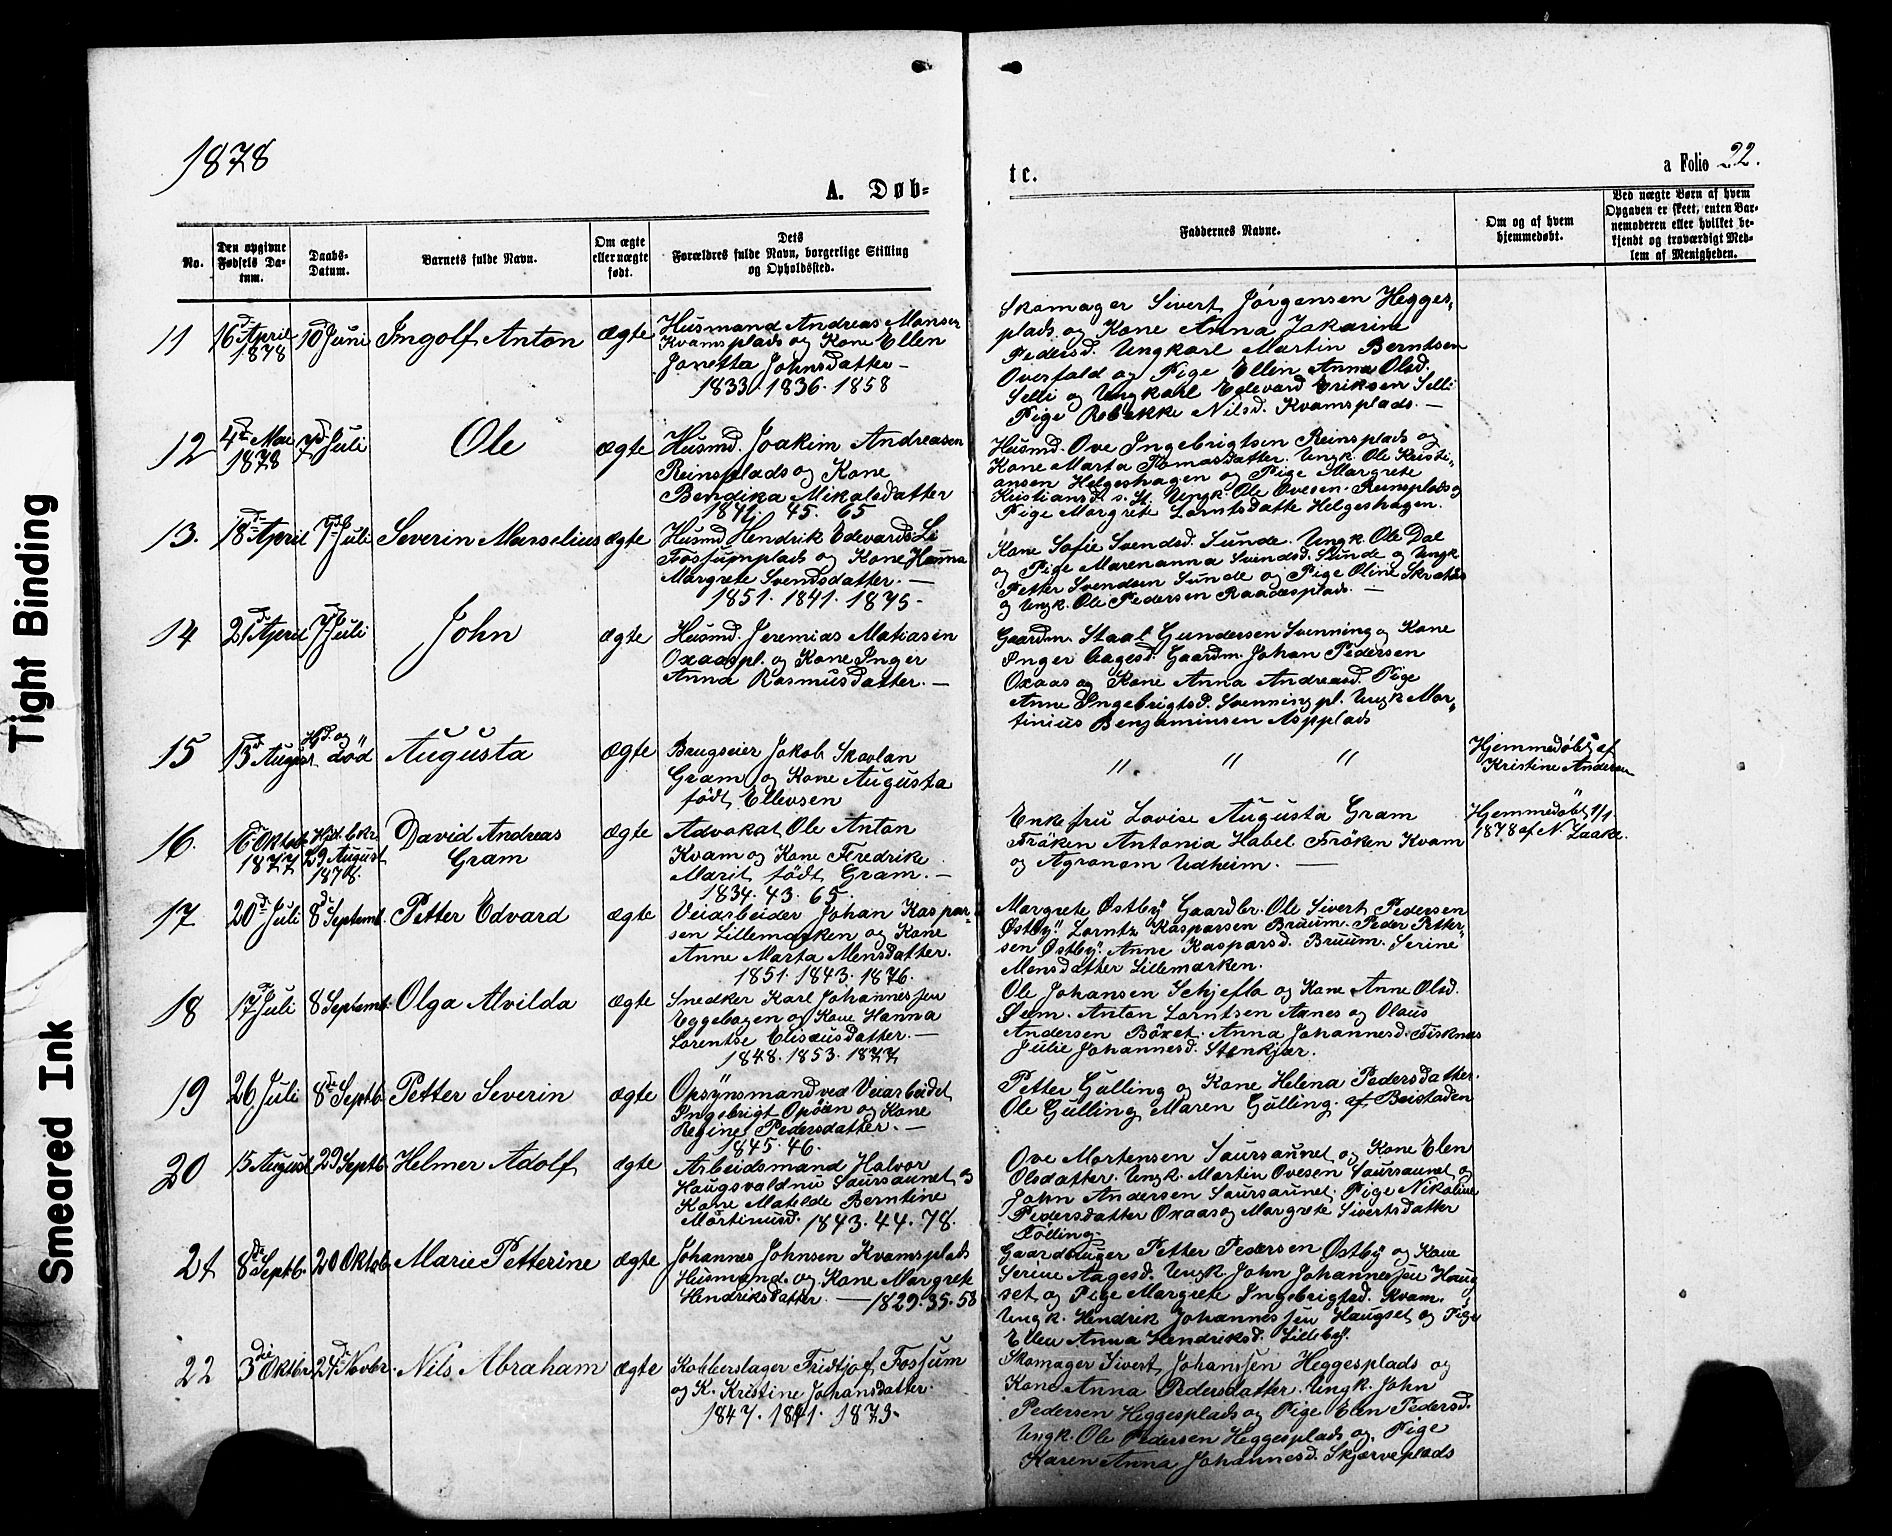 Tight Binding
Smeared Ink
1878
A. Døb=
tc.
a Folio 22.
No.
Den opgivne
Fødsels Da-
tum.
Daabs-
Datum.
Barnets fulde Navn.
Om ægte
eller nægte
født.
Dets
Forældres fulde Navn, borgerlige Stilling
og Opholdssted.
Faddernes Navne.
Om og af hvem
hjemmedøbt.
Ved nægte Børn af hvem
Opgaven er skeet, enten Bar-
nemoderen eller hvilket be-
kjendt og troværdigt Med-
lem af Menigheden.
11
16d April
1878
10d Juni
Ingolf Anton
ægte
Husmand Andreas Monsen
Kvamsplads og Kone Ellen
Jonetta Johnsdatter –
1833. 1836. 1858
Skomager Sivert Jørgensen Hegges,
plads og Kone Anna Zakarine
Pedersd. Ungkarl Martin Berntsen
Overfald og Pige Ellin Anna Olsd.
Selli og Ungkarl Edevard Eriksen Selli
Pige Rebekke Nilsd. Kvamsplads. –
12
4de Mai
1878
7d Juli
Ole
ægte
Husmd. Joakim Andreasen
Reinsplads og Kone
Bendika Mikalsdatter
1841. 45. 65
Husmd. Ove Ingebrigtsen Reinsplads og
Kone Marta Tomasdatter. Ungk. Ole Kristi-
ansen Helgeshagen og Pige Margrete
Kristiansd. s. St. Ungk. Ole Ovesen Reinsplads og
Pige Margrete Lorntsdatte Helgeshagen.
13.
18d April
7d Juli
Severin Marselius
ægte
Husmd Hendrik Edevards Li
Fossumplads og Kone Hanna
Margrete Svendsdatter. –
1851. 1841. 1875.
Kone Sofie Svendsd. Sunde. Ungk Ole Dal
og Pige Marenanna Svendsd. Sunde og Ungk
Petter Svendsen Sunde og Pige Oline
og Ungk. Ole Pedersen Raadesplads. –
14
21d April
7d Juli
John
ægte
Husmd. Jeremias Matiasen
Oxaaspl. og Kone Inger
Anna Rasmusdatter. –
Gaardm. Staal Gundersen Svenning og Kone
Inger Aagesd. Gaardm. Johan Pedersen
Oxaas og Kone Anna Andreasd. Pige
Anne Ingebrigtsd. Svenningpl. Ungk Mar-
tinius Benjaminsen Aspplads
15
13d August
Hjd. og
død
Augusta
ægte
Brugseier Jakob Skavlan
Gram og Kone Augusta
født Ellevsen
" " "
Hjemmedøbt af
Kristine Andersen
16.
16d Oktob.
1877
Hjd. bkr.
29 August
1878.
David Andreas
Gram
ægte
Advokat Ole Anton
Kvam og Kone Fredrike
Marit født Gram. –
1834. 43. 65.
Enkefru Lovise Augusta Gram
Frøken Antonia Habel Frøken Kvam
og Agronom Udheim. –
Hjemmedøbt 1/1
1878 af N. Laake.
17
20d Juli
8d Septemb.
Petter Edvard
ægte
Veiarbeider Johan Kaspar-
sen Lillemarken og Kone
Anne Marta Monsdatter.
1851. 1843. 1876.
Margrete Østby Gaardbr. Ole Sivert Pedersen
Østby. Lorntz Kasparsen Bruum. Peder Petter-
sen Østby. Anne Kaspersd. Bruum. Serine
Monsdatter Lillemarken.
18
17d Juli
8 Septemb.
Olga Alvilda
ægte
Snedker Karl Johannessen
Eggebogen og Kone Hanna
Lorentse Elisæusdatter. –
1848. 1853. 1877
Ole Johansen Schjeflo og Kone Anne Olsd.
Øem. Anton Lorntsen Axnes og Olaus
Andersen Bøxet. Anna Johannesd. Fisknes
Julie Johannesd. Stenkjær.
19
26 Juli
8d Septb.
Petter Severin
ægte
Opsynsmand ved Veiarbeidet
Ingebrigt Opøien og Kone
Regine Pedersdatter. –
1845. 46.
Petter Gulling og Kone Helena Pedersdatter.
Ole Gulling Maren Gulling. af Beistaden
20
15 August
29 Septb.
Helmer Adolf
ægte
Arbeidsmand Halvor
Haugsvald nu Saursaunet og
Kone Matilde Berntine
Martinusd. 1843. 44. 78.
Ove Mortensen Saursaunet og Kone Elen
Olsdatter. Ungk. Martin Ovesen Saursaunet og
John Andersen Saursaunet. Pige Nikoline
Pedersdatter Oxaas og Margrete Sivertsdatter
Følling
21
8de Septb.
20 Oktob.
Marie Petterine
ægte
Johannes Johnsen Kvamsplads
Husmand og Kone Margrete
Hendriksdatter. – 1829. 35. 58
Gaardbruger Petter Pedersen Østby og Kone
Serine Aagesd. Ungk. John Johannessen Haug
set og Pige Margrete Ingebrigtsd. Kvam.
Ungk. Hendrik Johannessen Haugset og Pige
Ellen Anna Hendriksd. Lilleby.
22
3die Oktbr
24d Novbr.
Nils Abraham
ægte
Kobberslager Fridtjof Fossum
og K. Kristine Johansdatter.
1847. 1841. 1873.
Skomager Sivert Johanssen Heggesplads og
Kone Anna Pedersdatter. Ungk. John
Pedersen Heggesplads og Pige Elen Pedersd.
Ungk. Ole Pedersen Heggesplads og Pige
Karen Anna Johannesd. Skjerveplads